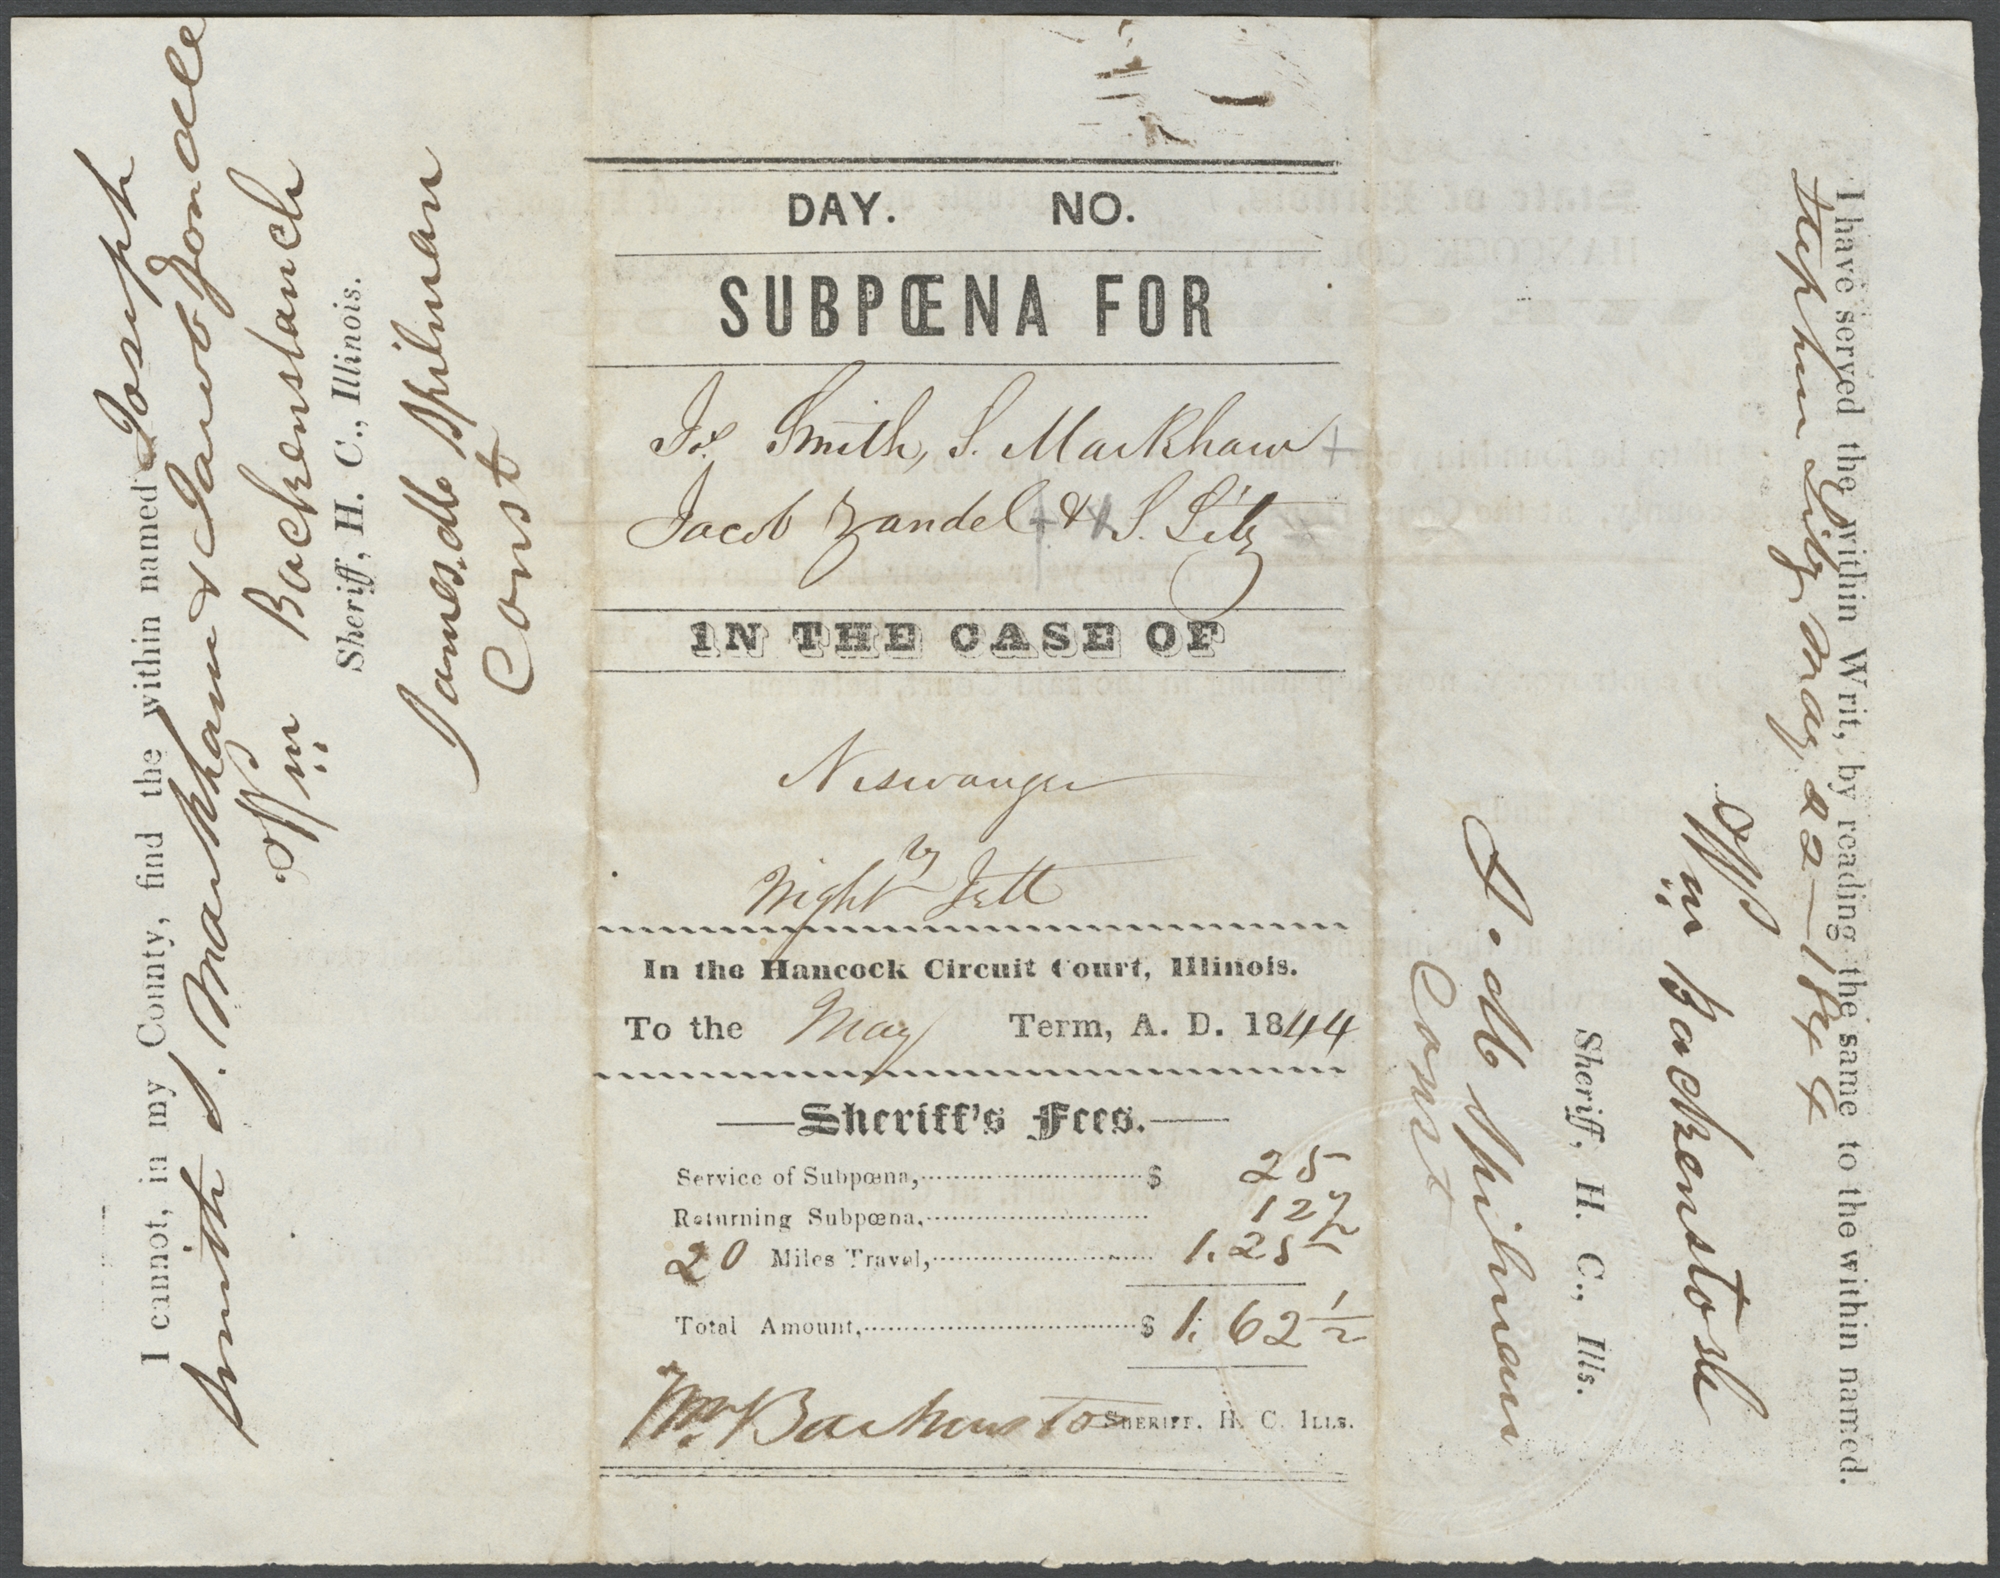 I cannot, in my County, find the within named Joseph
Smith S. Markham & Jacob Zondall
Wm Backenstanch
Sheriff, H. C., Illinois.
James. Db Spilman
Const
DAY. NO.
SUBPŒNA FOR
Js. Smith, S. Markham +
Jacob Zandel + & S. Litz
IN THE CASE OF
Niswanger
vs
Wight Jett
In the Hancock Circuit Court, Illinois.
To the May Term, A. D. 1844
Sheriff's Fees.
Service of Subpœna, $ 25
Returning Subpœna, 12 1/2
20 Miles Travel, 1.25
Total Amount, $ 1. 62 1/2
Wm. Backensto SHERIFF, H. C. ILLS.
I have served the within Writ, by reading the same to the within named.
Stephen Litz, May 22 — 1844
Wm Backenstose
Sheriff, H. C., Ills.
J. Db Spilman
Const